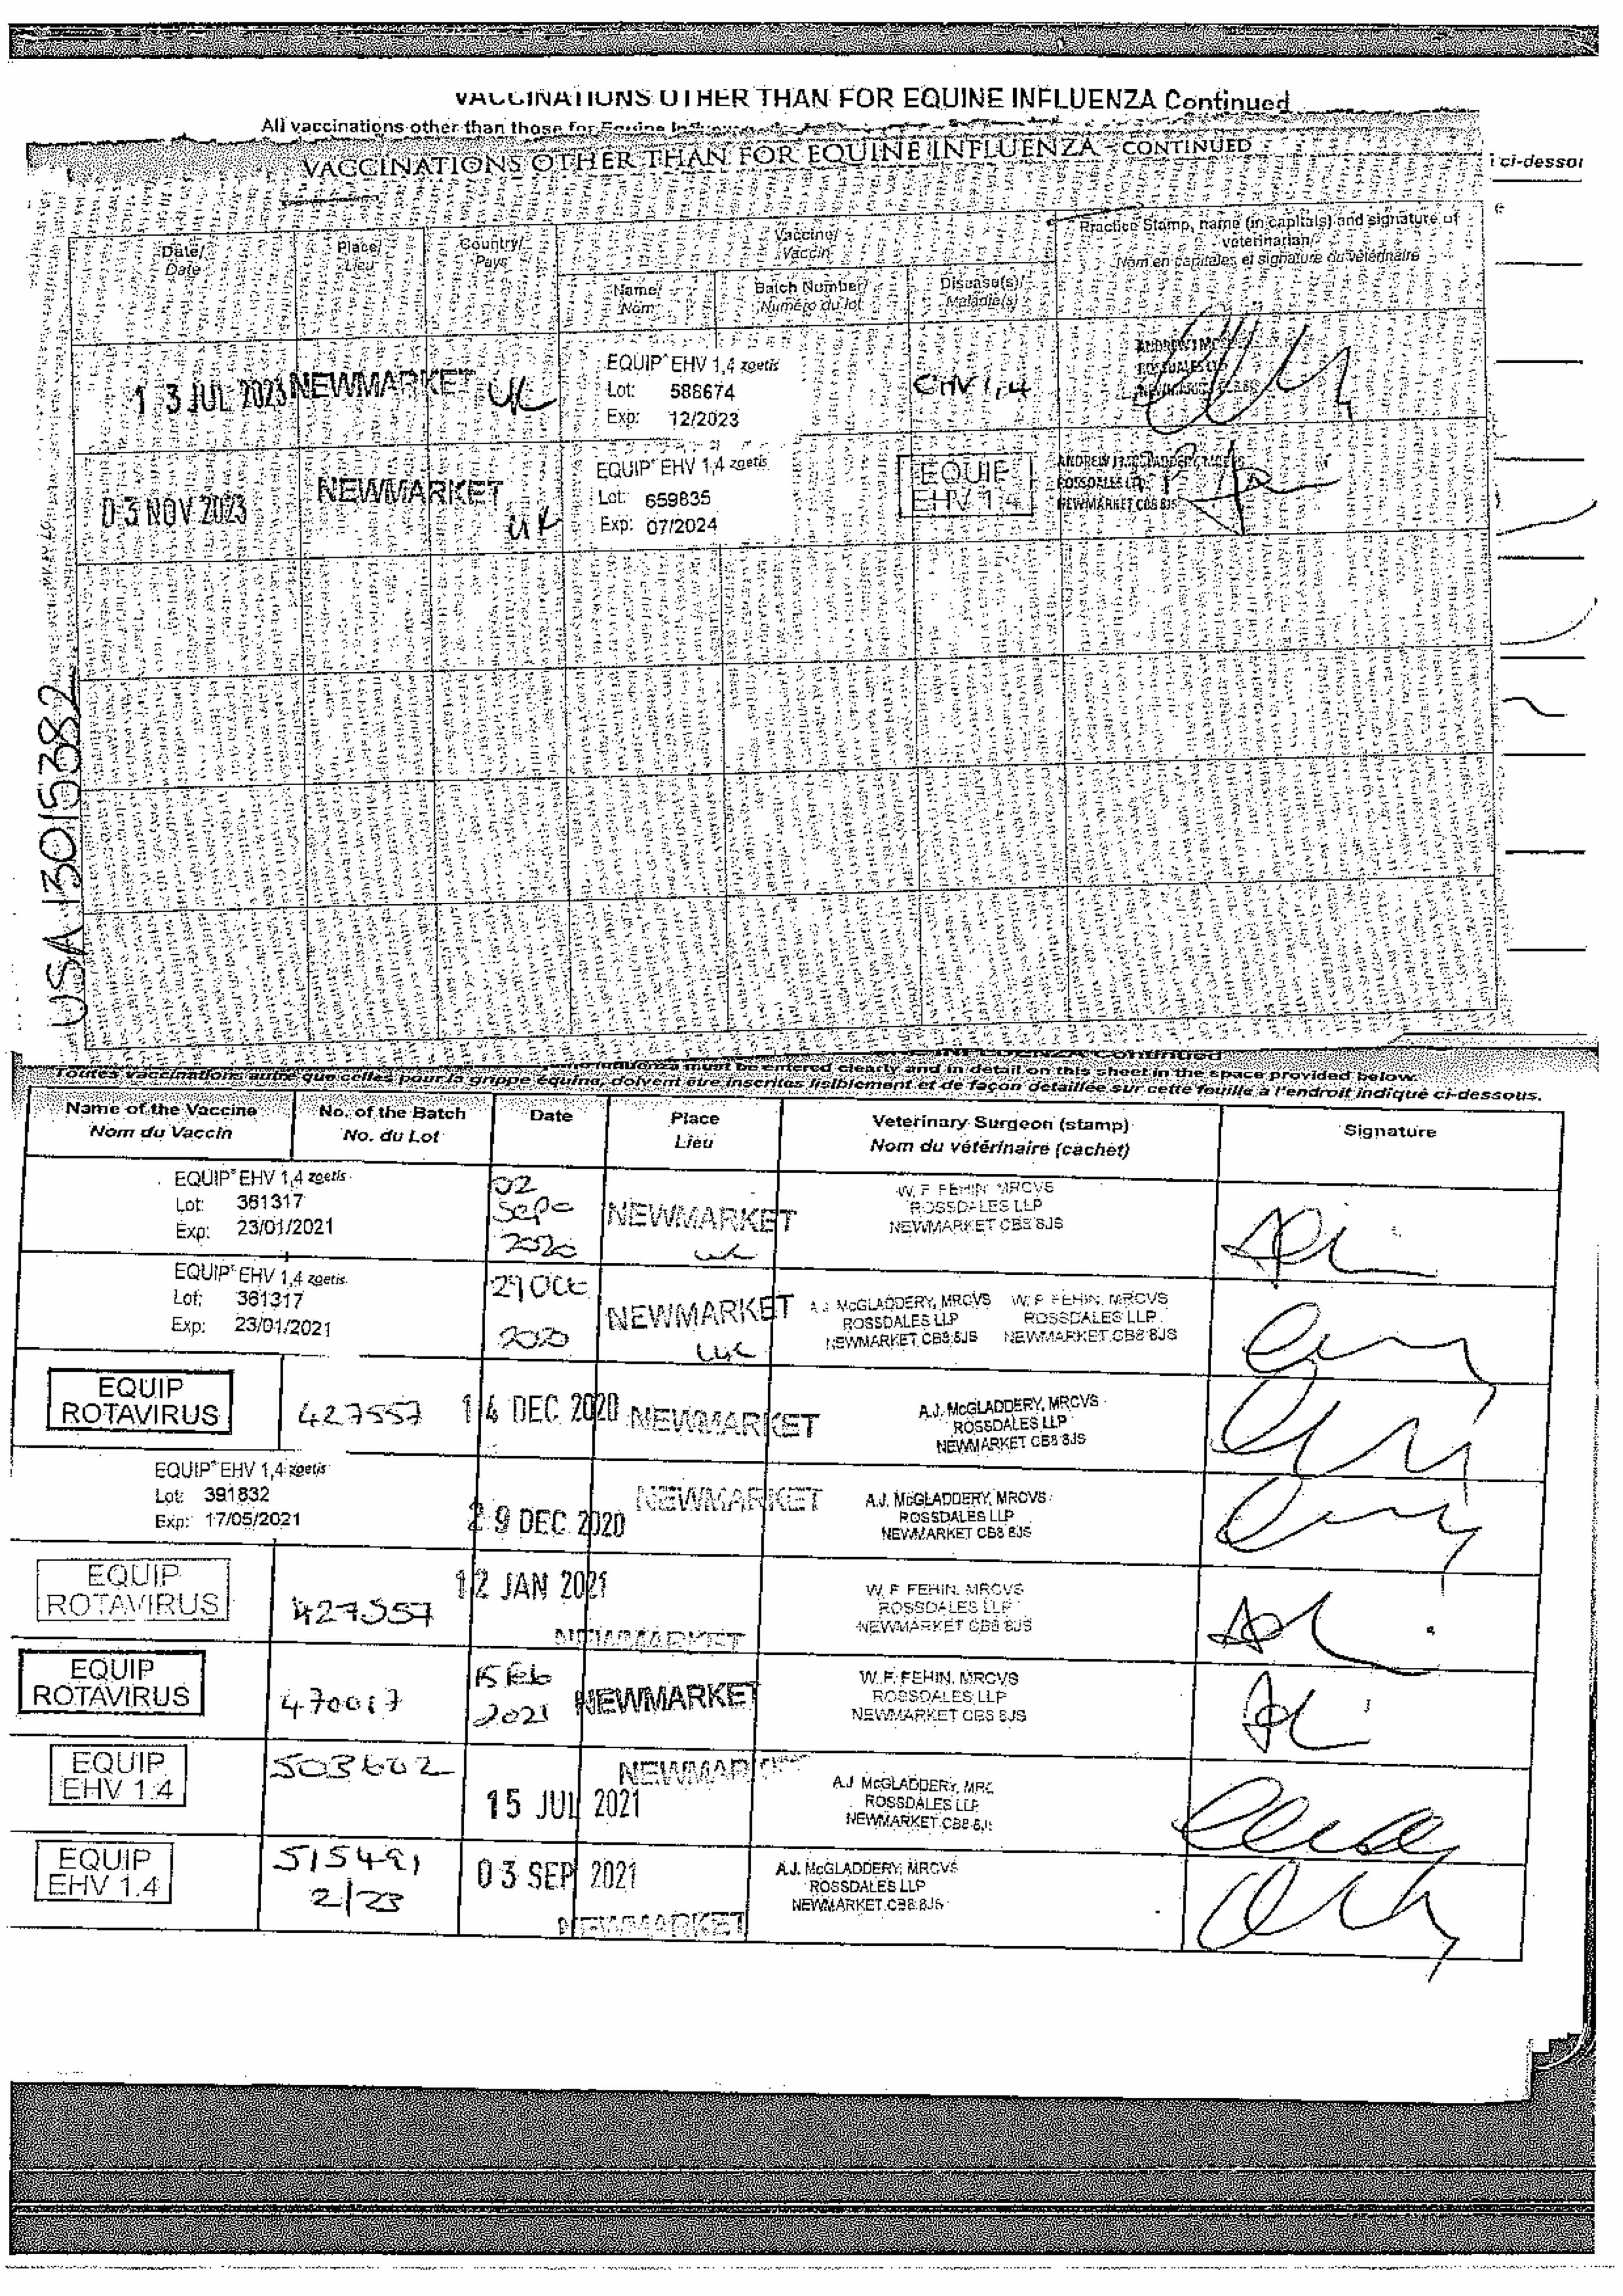 VACCINATIONS OTHER THAN FOR EQUINE INFLUENZA Continued
All vaccinations other than those for Equine
VACCINATIONS OTHER THAN FOR EQUINE INFLUENZA - CONTINUED
ci-dessou
Date/ Date
Place/ Lieu
Country/ Pays
Vaccine/ Vaccin
Practice Stamp, name (in capitals) and signature of veterinarian/
Nom en capitales et signature du vétérinaire
Name/ Nom
Batch Number/ Numéro du lot
Disease(s)/ Maladie(s)
13 JUL 2023 NEWMARKET UK
EQUIP EHV 1,4 zoetis
Lot: 588674
Exp: 12/2023
EHV 1,4
ROSSDALES
NEWMARKET
03 NOV 2023 NEWMARKET UK
EQUIP EHV 1,4 zoetis
Lot: 659835
Exp: 07/2024
EQUIP
EHV 1.4
ROSSDALES LLP
NEWMARKET CB8 8JS
USA 13015382
INFLUENZA Continued
influenza must be entered clearly and in detail on this sheet in the space provided below.
Toutes vaccinations autre que celles pour la grippe équine, doivent être inscrites lisiblement et de façon détaillée sur cette feuille à l'endroit indiqué ci-dessous.
Name of the Vaccine
Nom du Vaccin
No. of the Batch
No. du Lot
Date
Place
Lieu
Veterinary Surgeon (stamp)
Nom du vétérinaire (cachet)
Signature
EQUIP EHV 1,4 zoetis
Lot: 361317
Exp: 23/01/2021
02
Sept
2020
NEWMARKET
UK
W. F. FEHIN MRCVS
ROSSDALES LLP
NEWMARKET CB8 8JS
EQUIP EHV 1,4 zoetis
Lot: 361317
Exp: 23/01/2021
29 Oct
2020
NEWMARKET
UK
A.J. McGLADDERY, MRCVS
ROSSDALES LLP
NEWMARKET CB8 8JS
W. F. FEHIN, MRCVS
ROSSDALES LLP
NEWMARKET CB8 8JS
EQUIP
ROTAVIRUS
427557
14 DEC 2020
NEWMARKET
A.J. McGLADDERY, MRCVS
ROSSDALES LLP
NEWMARKET CB8 8JS
EQUIP EHV 1,4 zoetis
Lot: 391832
Exp: 17/05/2021
29 DEC 2020
NEWMARKET
A.J. McGLADDERY, MRCVS
ROSSDALES LLP
NEWMARKET CB8 8JS
EQUIP
ROTAVIRUS
427557
12 JAN 2021
NEWMARKET
W. F. FEHIN, MRCVS
ROSSDALES LLP
NEWMARKET CB8 8JS
EQUIP
ROTAVIRUS
470017
15 Feb
2021
NEWMARKET
W. F. FEHIN, MRCVS
ROSSDALES LLP
NEWMARKET CB8 8JS
EQUIP
EHV 1.4
503602
15 JUL 2021
NEWMARKET
A.J. McGLADDERY, MRC
ROSSDALES LLP
NEWMARKET CB8 8JS
EQUIP
EHV 1.4
515491
2/23
03 SEP 2021
NEWMARKET
A.J. McGLADDERY, MRCVS
ROSSDALES LLP
NEWMARKET CB8 8JS